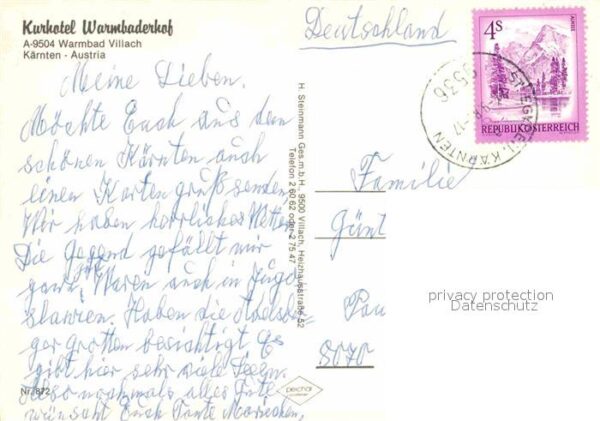 Kurhotel Warmbaderhof
A-9504 Warmbad Villach
Kärnten - Austria
Meine Lieben.
Möchte Euch aus dem
schönen Kärnten auch
einen Kartengruß senden.
Wir haben herrliches Wetter
Die Gegend gefällt mir
ganz Waren auch in Jugo
slawien. Haben die Adelsber
ger Grotten besichtigt Es
gibt hier sehr viele Seen.
Also nochmals alles Gute
wünscht Euch Tante Mariechen.
Nr. 872
H. Steinmann Ges.m.b.H., 9500 Villach, Heizhausstraße 52
Telefon 2 60 62 oder 2 75 47
pechar
Deutschland
4S
ALMSEE
REPUBLIK ÖSTERREICH
9536
KÄRNTEN
Familie
Günt
Pau
8070
privacy protection
Datenschutz